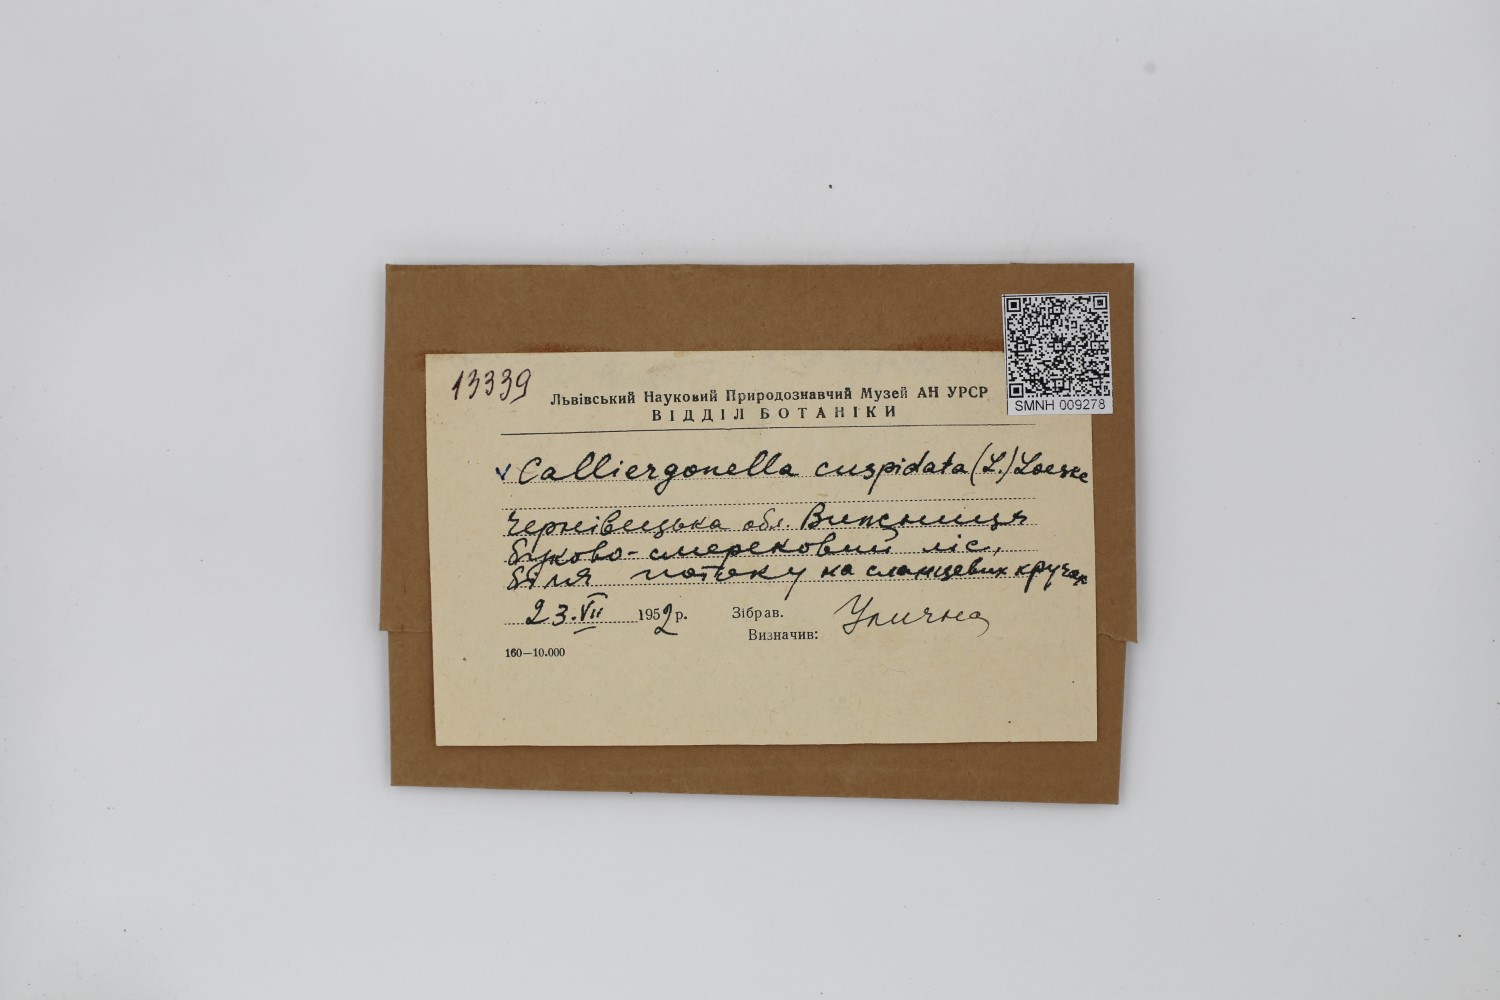 SMNH 009278
13339
Львівський Науковий Природознавчий Музей АН УРСР
ВІДДІЛ БОТАНІКИ
v Calliergonella cuspidata (L.) Loeske
Чернівецька обл. Вижниця
буково-смерековий ліс,
біля потоку на сланцевих кручах
23.VII 1952 р. Зібрав. Уличка
Визначив:
160—10.000